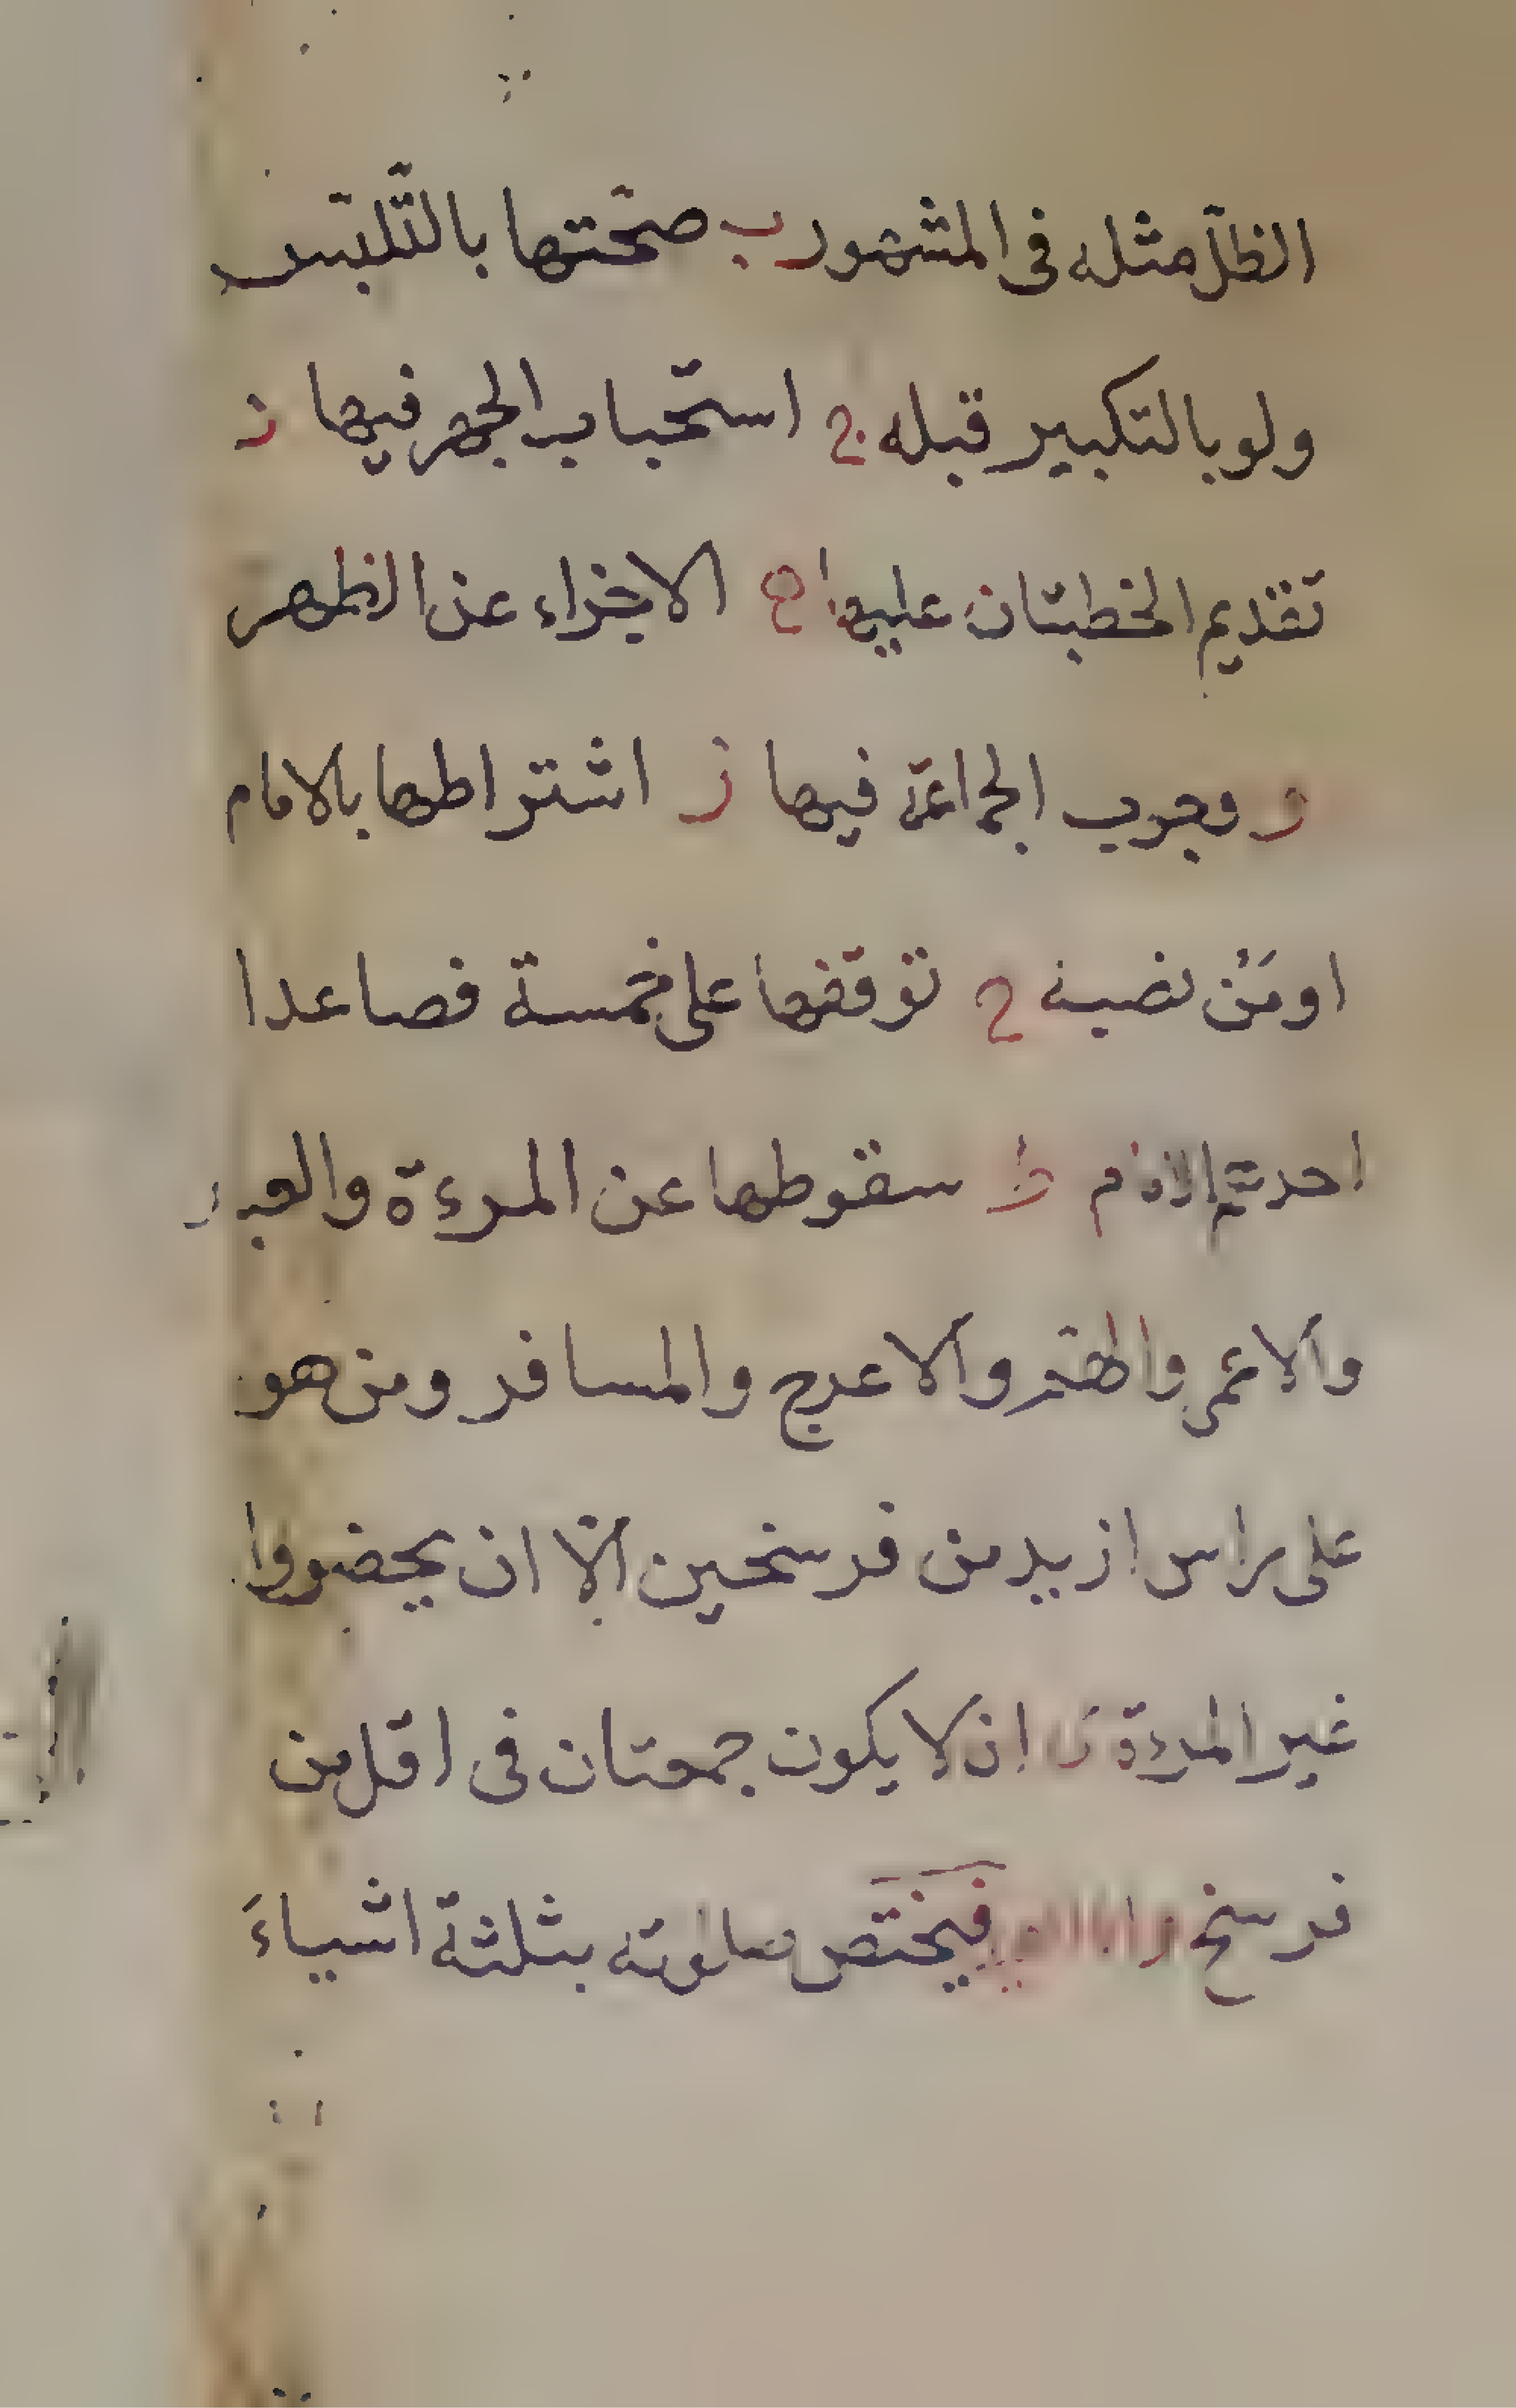 الظلّ مثله فى المشهور ب صحّتها بالتّلبّس
ولو بالتكبير قبله ج استحّباب الجهر فيها د
تقديم الخطبتان عليها ه الاجزاء عن الظهر
و وجوب الجماعة فيها ز اشتراطها بالامام
او مَنْ نصبه ح توقّفها على خمسة فصاعدا
احدهم الامام ط سقوطها عن المرءة والعبد
والاعمى والهمّ والاعرج والمسافر ومن هو
على راس ازيد من فرسخين الّا ان يحضروا
غير المرءة ى ان لا يكون جمعتان فى اقل من
فرسخ فيختص صلوته بثلثة اشياءَ